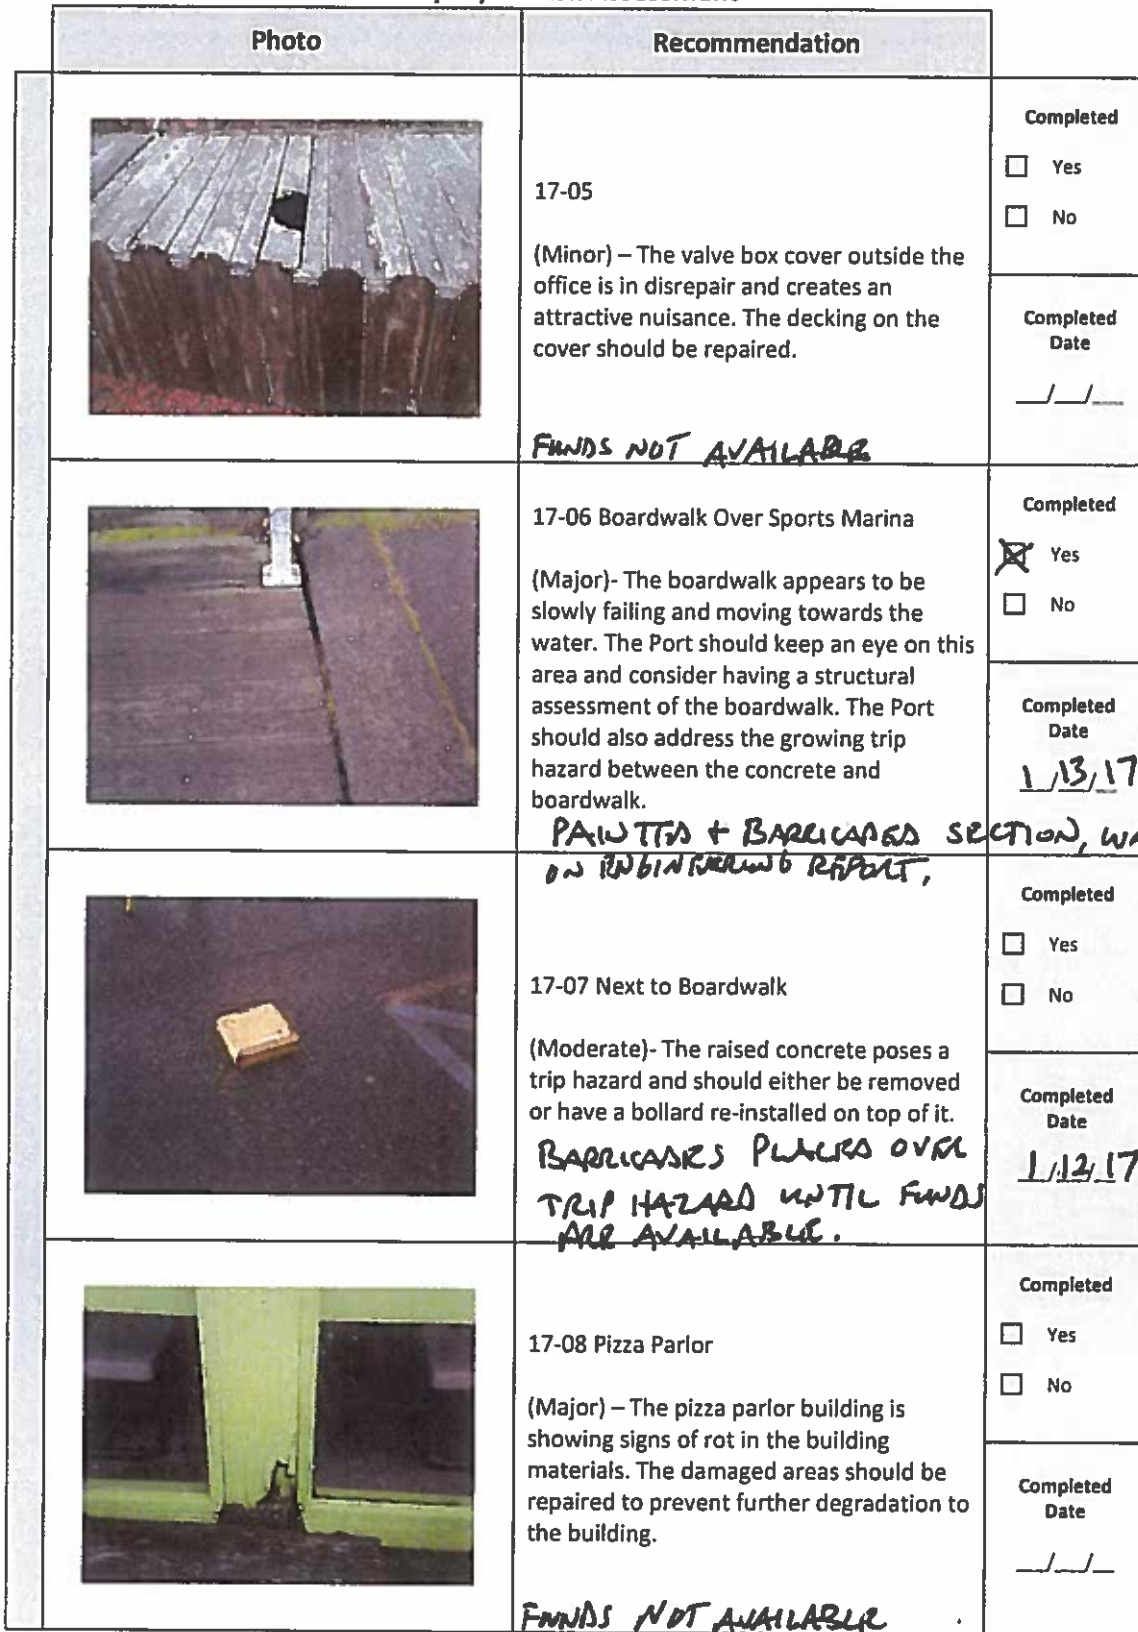 Photo
Recommendation
17-05
(Minor) – The valve box cover outside the
office is in disrepair and creates an
attractive nuisance. The decking on the
cover should be repaired.
FUNDS NOT AVAILABLE
Completed
Yes
No
Completed
Date
__/__/__
17-06 Boardwalk Over Sports Marina
(Major)- The boardwalk appears to be
slowly failing and moving towards the
water. The Port should keep an eye on this
area and consider having a structural
assessment of the boardwalk. The Port
should also address the growing trip
hazard between the concrete and
boardwalk.
PAINTED + BARRICADED SECTION, WA
ON ENGINEERING REPORT.
Completed
Yes
No
Completed
Date
1/13/17
17-07 Next to Boardwalk
(Moderate)- The raised concrete poses a
trip hazard and should either be removed
or have a bollard re-installed on top of it.
BARRICADES PLACED OVER
TRIP HAZARD UNTIL FUNDS
ARE AVAILABLE.
Completed
Yes
No
Completed
Date
1/12/17
17-08 Pizza Parlor
(Major) – The pizza parlor building is
showing signs of rot in the building
materials. The damaged areas should be
repaired to prevent further degradation to
the building.
FUNDS NOT AVAILABLE
Completed
Yes
No
Completed
Date
__/__/__